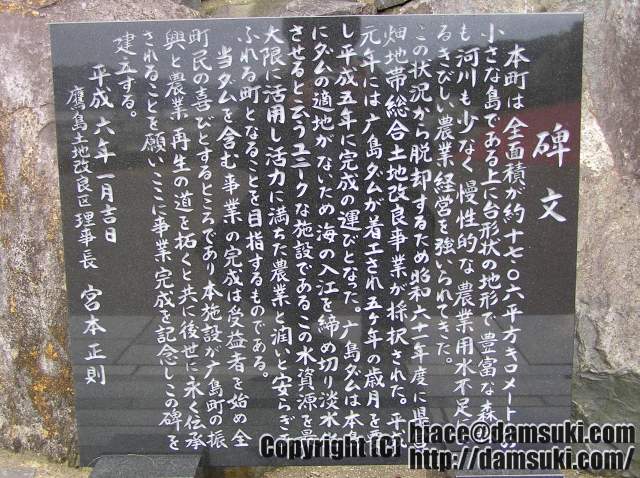 碑文
本町は全面積が約十七〇六平方キロメート
小さな島である上に台形状の地形で豊富な森
も河川も少なく慢性的な農業用水不足
るきびしい農業経営を強いられてきた。
この状況から脱却するため昭和六十一年度に県
畑地帯総合土地改良事業が採択された。平成
元年には广島ダムが着工され五ケ年の歳月を
し平成五年に完成の運びとなった。广島ダムは本島
にダムの適地がないため海の入江を締め切り淡水
させると云うユニークな施設であるこの水資源を最
大限に活用し活力に満ちた農業と潤いと安らぎ
ふれる町となることを目指すものである。
当ダムを含む事業の完成は受益者を始め全
町民の喜びとするところであり本施設が广島町の振
興と農業再生の道を拓くと共に後世に永く伝承
されることを願いここに事業完成を記念しこの碑を
建立する。
平成六年一月吉日
鷹島土地改良区理事長 宮本正則
Copyright (C) hiace@damsuki.com
http://damsuki.com/